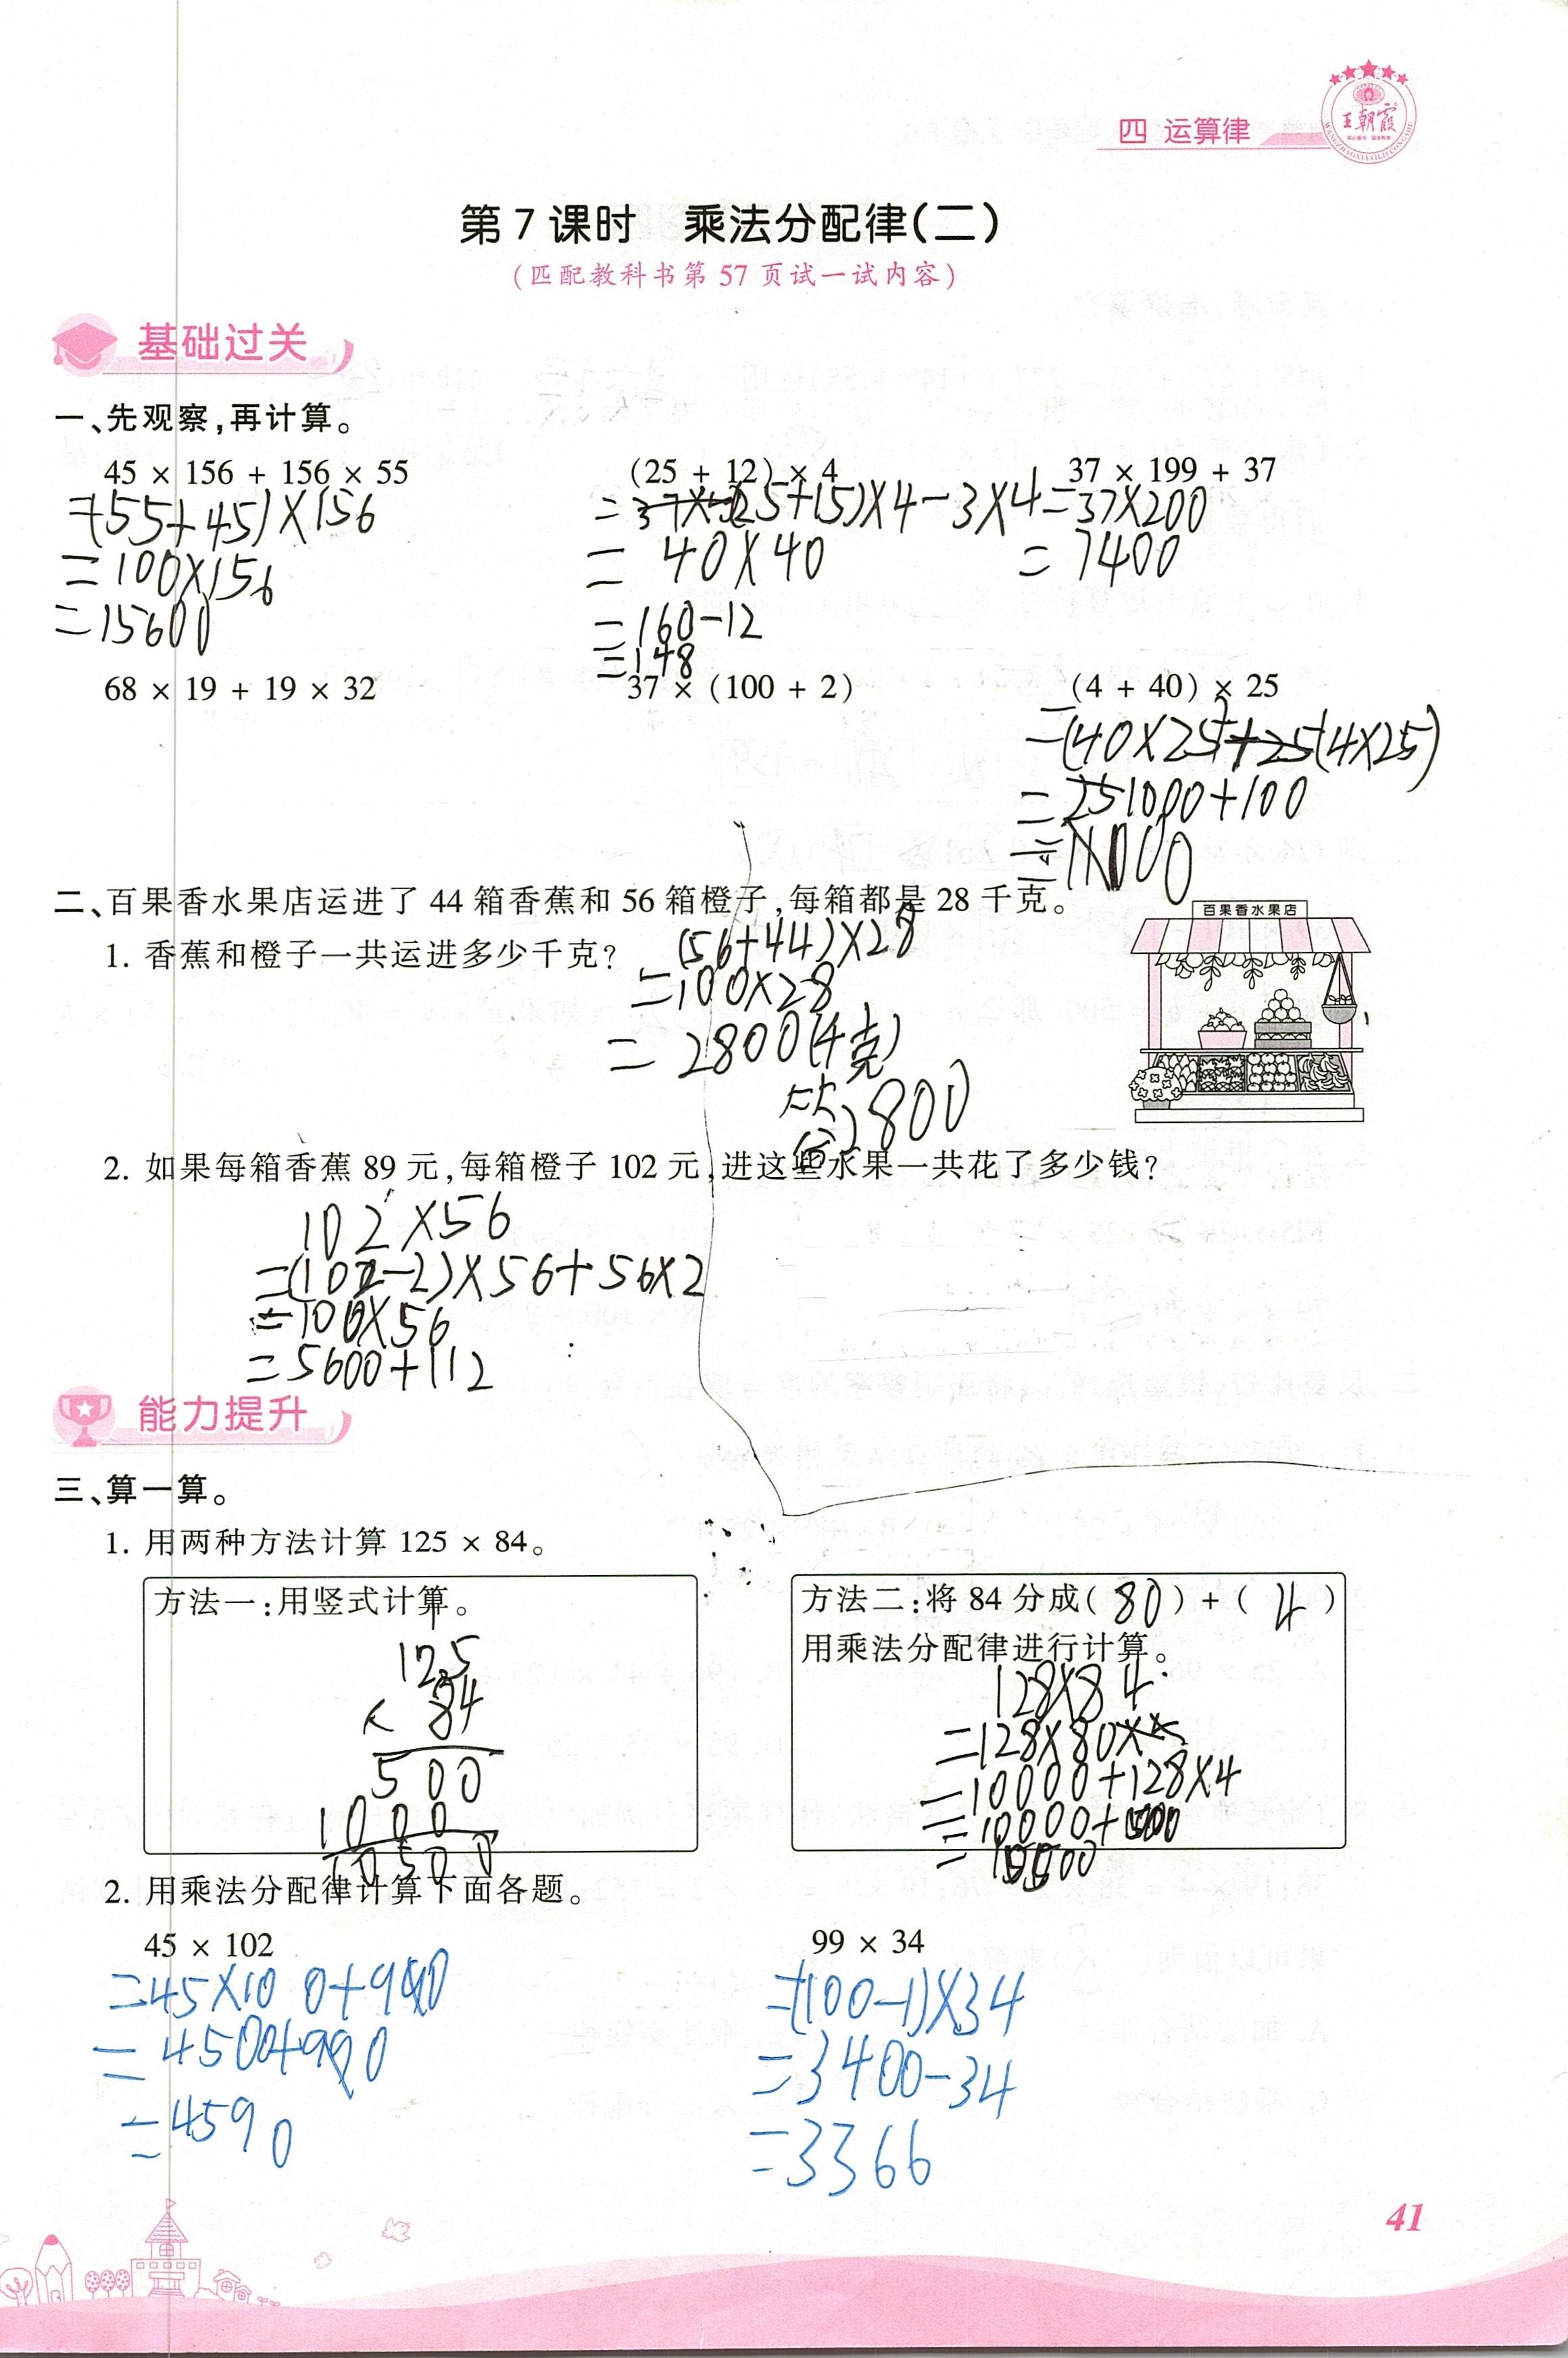 四 运算律
王朝霞
第7课时 乘法分配律(二)
(匹配教科书第57页试一试内容)
基础过关
一、先观察,再计算。
45 × 156 + 156 × 55
=(55+45)×156
=100×156
=15600
(25 + 12) × 4
=(25+15)×4-3×4
= 40×40
=160-12
=148
37 × 199 + 37
=37×200
= 7400
68 × 19 + 19 × 32
37 × (100 + 2)
(4 + 40) × 25
=(40×25)+(4×25)
=1000+100
二、百果香水果店运进了44箱香蕉和56箱橙子,每箱都是28千克。
百果香水果店
1. 香蕉和橙子一共运进多少千克?
(56+44)×28
=100×28
= 2800(千克)
答2800
2. 如果每箱香蕉89元,每箱橙子102元,进这些水果一共花了多少钱?
102×56
=(102-2)×56+56×2
=100×56
=5600+112
能力提升
三、算一算。
1. 用两种方法计算125 × 84。
方法一:用竖式计算。
125
× 84
500
1000
10500
方法二:将84分成( 80 ) + ( 4 )
用乘法分配律进行计算。
128×84
=128×80
=10000+128×4
=10000+500
2. 用乘法分配律计算下面各题。
45 × 102
=45×100+
=4590
99 × 34
=(100-1)×34
=3400-34
=3366
41